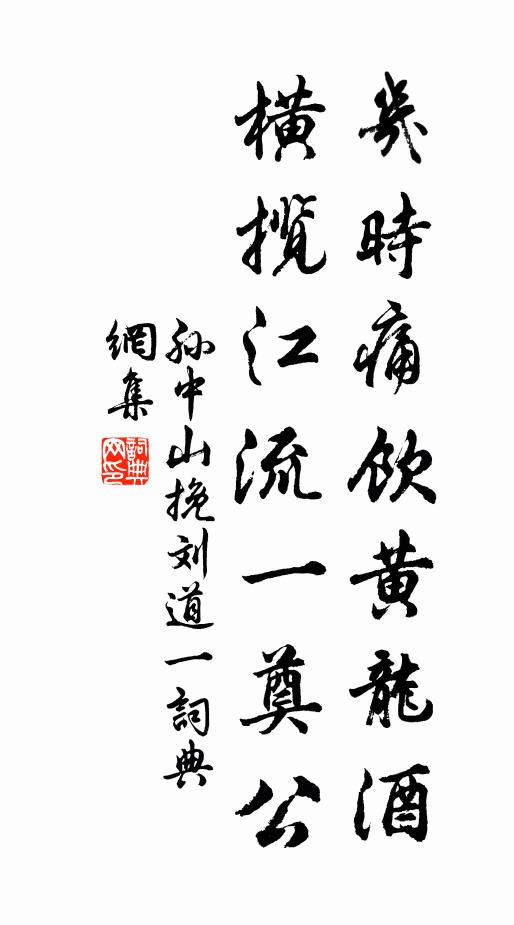 幾時痛飲黄龍酒
橫攬江流一奠公
孙中山挽刘道一詞典
網集
詞典
网印